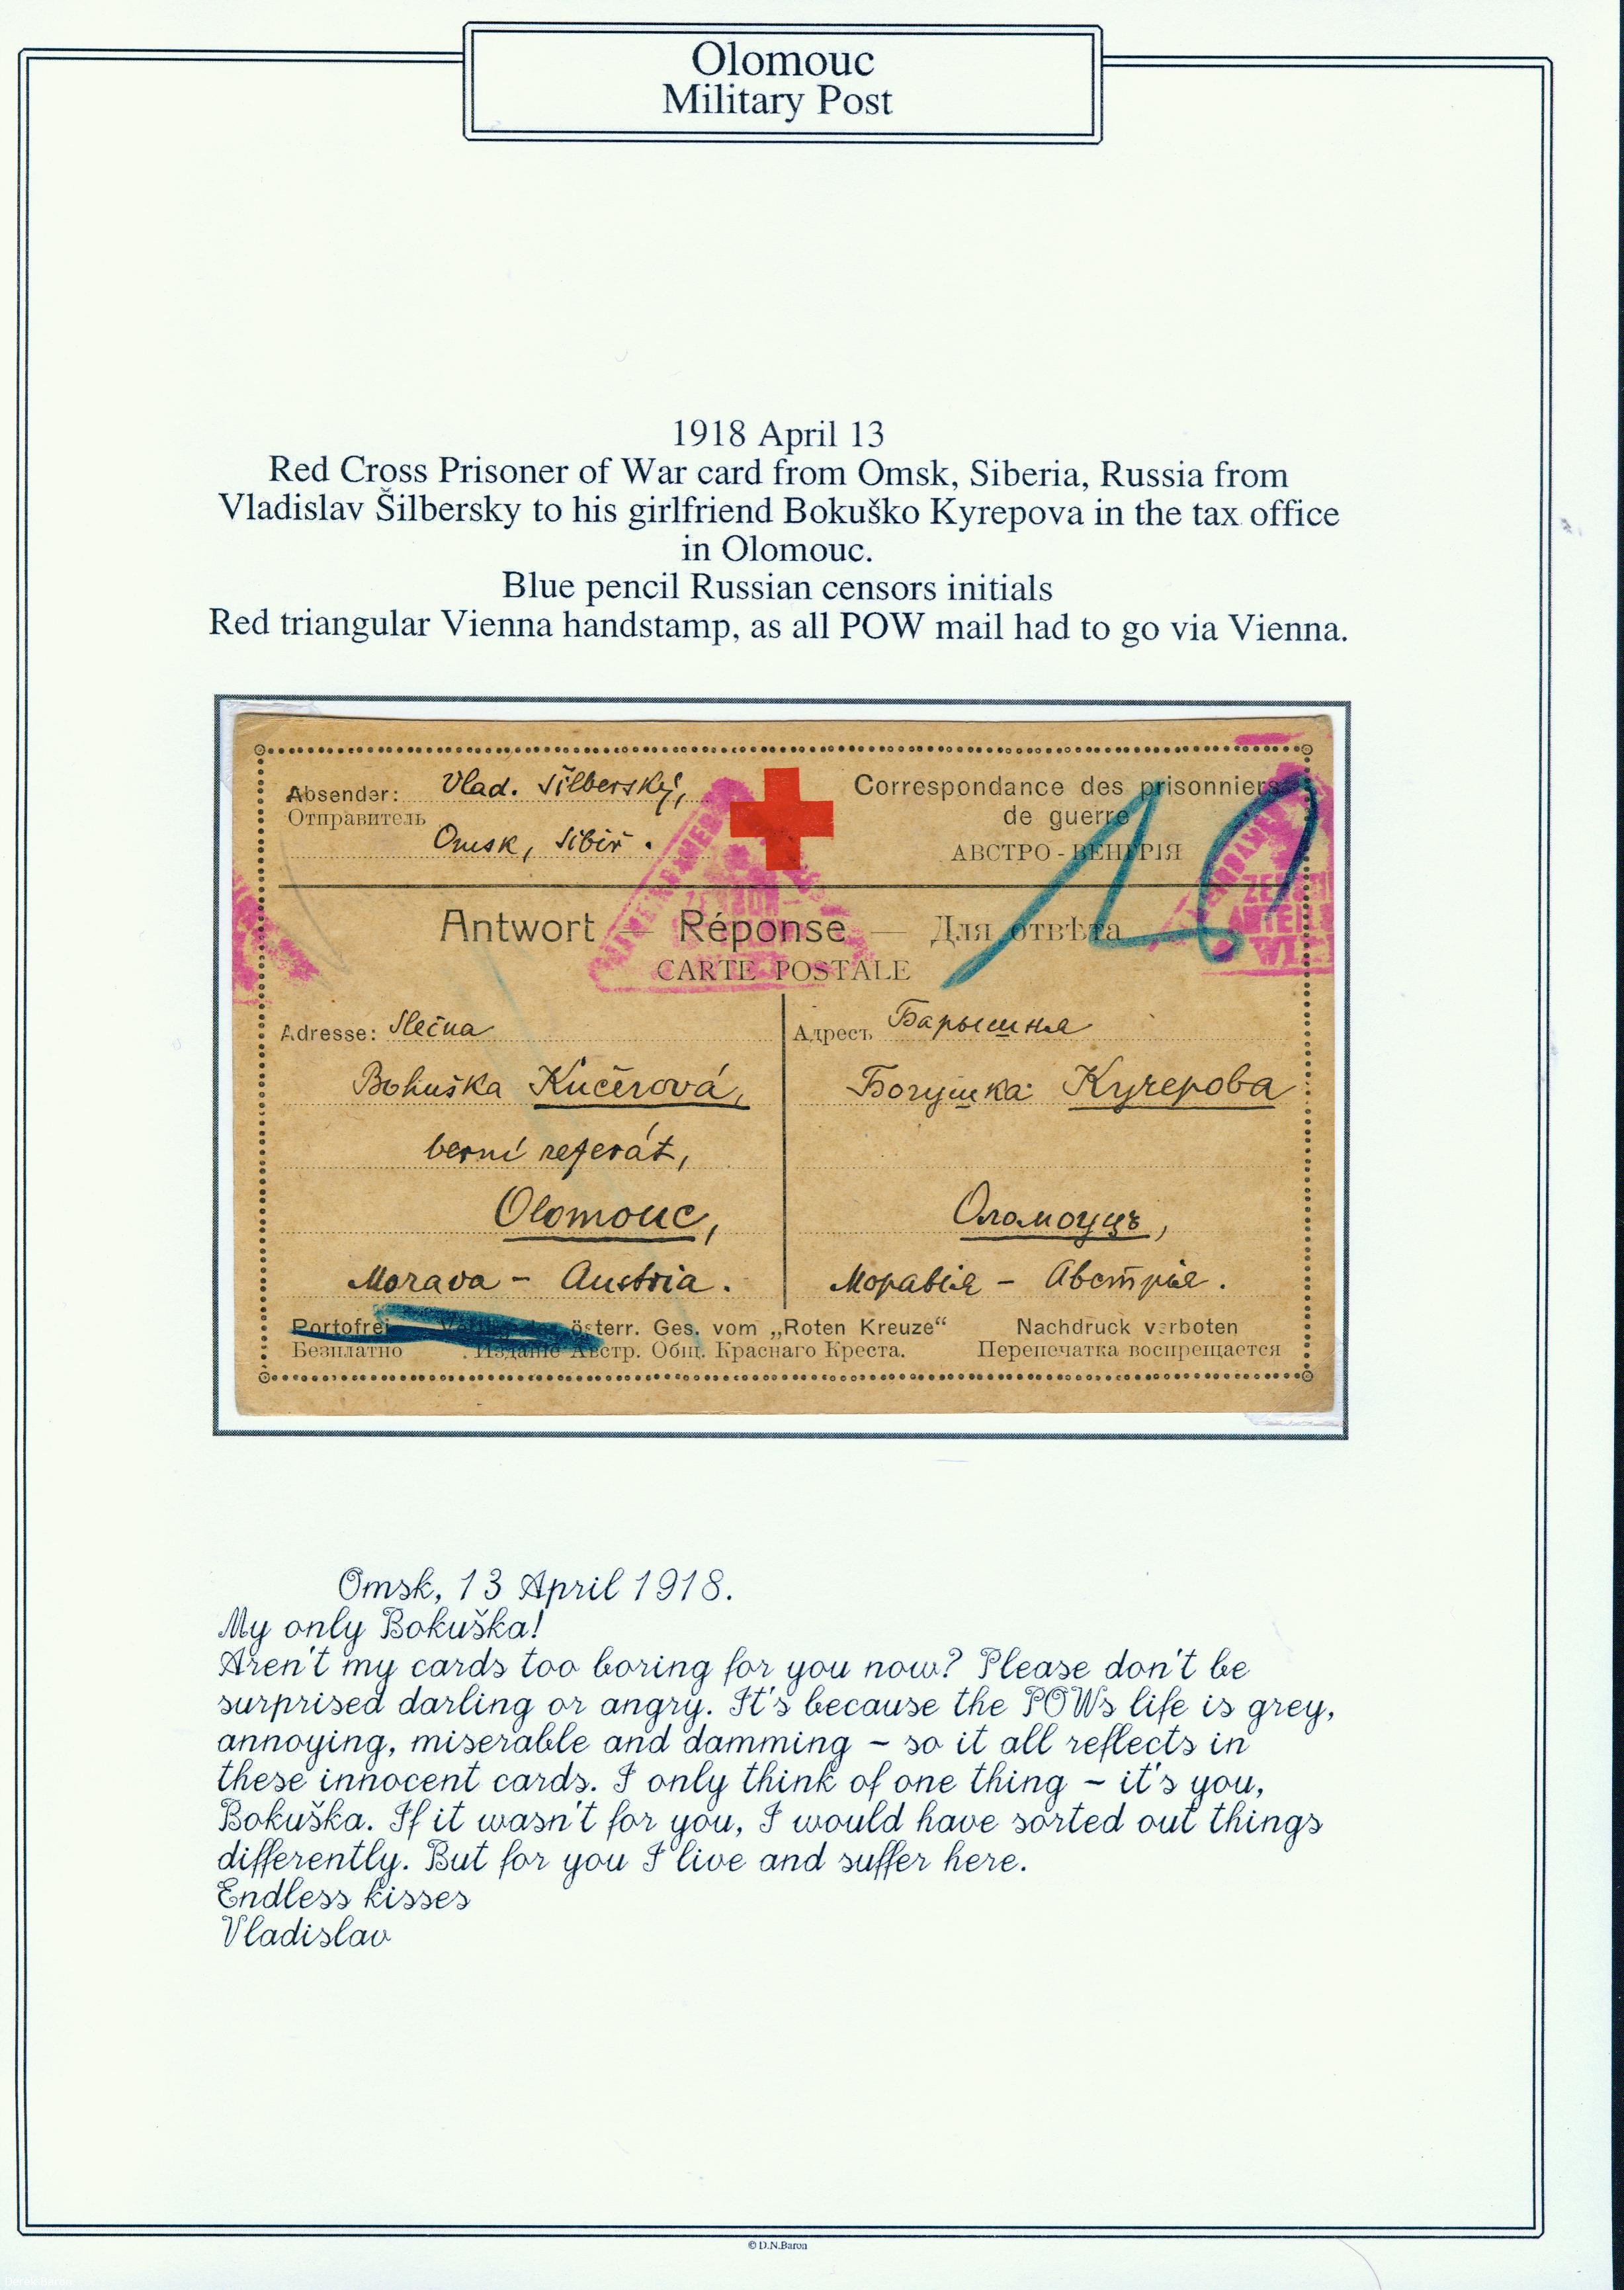 Olomouc
Military Post
1918 April 13
Red Cross Prisoner of War card from Omsk, Siberia, Russia from
Vladislav Šilbersky to his girlfriend Bokuško Kyrepova in the tax office
in Olomouc.
Blue pencil Russian censors initials
Red triangular Vienna handstamp, as all POW mail had to go via Vienna.
Absender: Vlad. Šilberský,
Отправитель
Omsk, Sibiř.
Correspondance des prisonniers
de guerre
АВСТРО-ВЕНГРІЯ
Antwort — Réponse — Для отвѣта
CARTE POSTALE
Adresse: Slečna
Bohuška Kučerová,
berní referát,
Olomouc,
Morava - Austria.
Адресъ Барышня
Богушка Кучерова
Оломоуцъ,
Моравія - Австрія.
Portofrei österr. Ges. vom „Roten Kreuze“ Nachdruck verboten
Безплатно Изданіе Австр. Общ. Краснаго Креста. Перепечатка воспрещается
Omsk, 13 April 1918.
My only Bokuška!
Aren't my cards too boring for you now? Please don't be
surprised darling or angry. It's because the POWs life is grey,
annoying, miserable and damming - so it all reflects in
these innocent cards. I only think of one thing - it's you,
Bokuška. If it wasn't for you, I would have sorted out things
differently. But for you I live and suffer here.
Endless kisses
Vladislav
© D.N.Baron